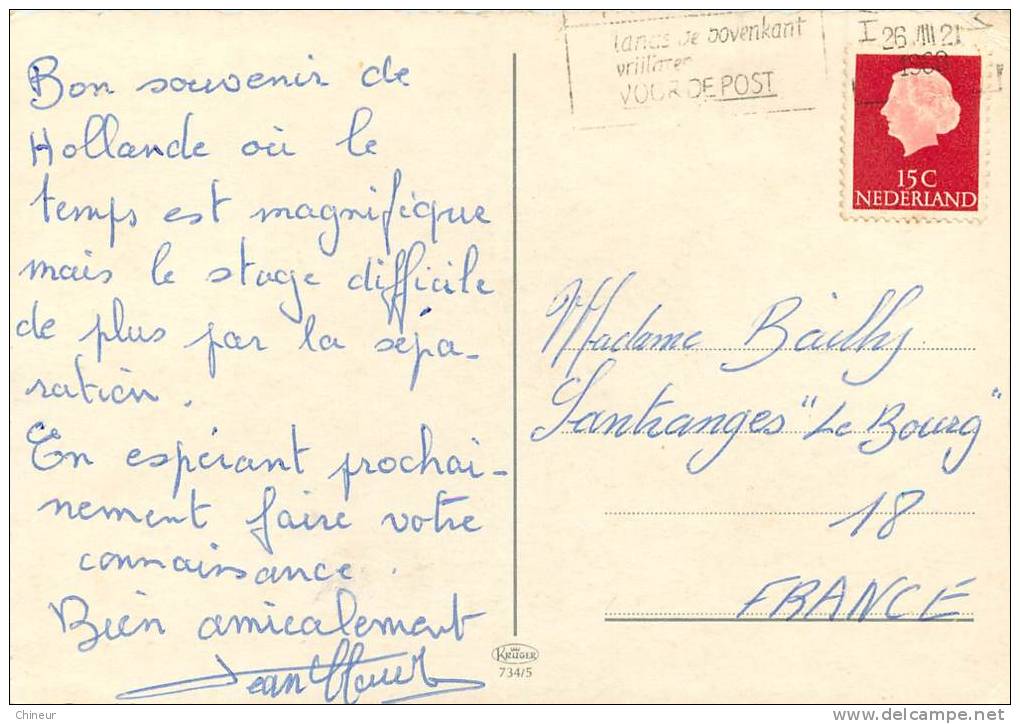 Bon souvenir de
Hollande où le
temps est magnifique
mais le stage difficile
de plus par la sépa-
ration.
En espérant prochai-
nement faire votre
connaissance.
Bien amicalement
Jean
langs de bovenkant
vrijlaten
VOOR DE POST
26 VIII 21
15 C
NEDERLAND
Madame Bailly
Santranges "Le Bourg"
18
FRANCE
KRÜGER
734/5
Chineur
http://www.delcampe.net